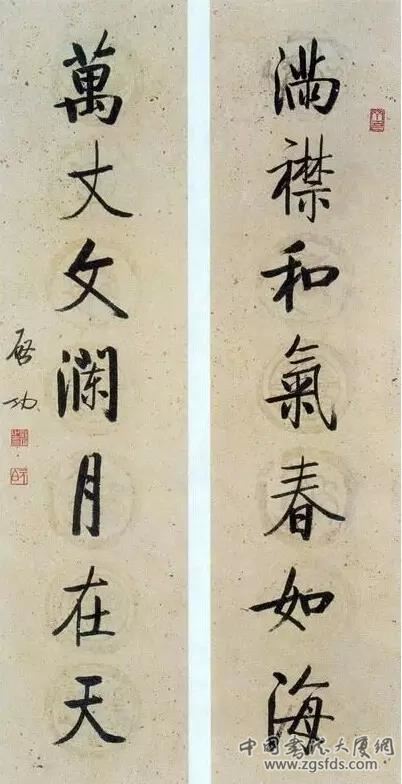 滿襟和氣春如海
萬丈文瀾月在天
启功
中国书法大厦网
www.zgsfds.com